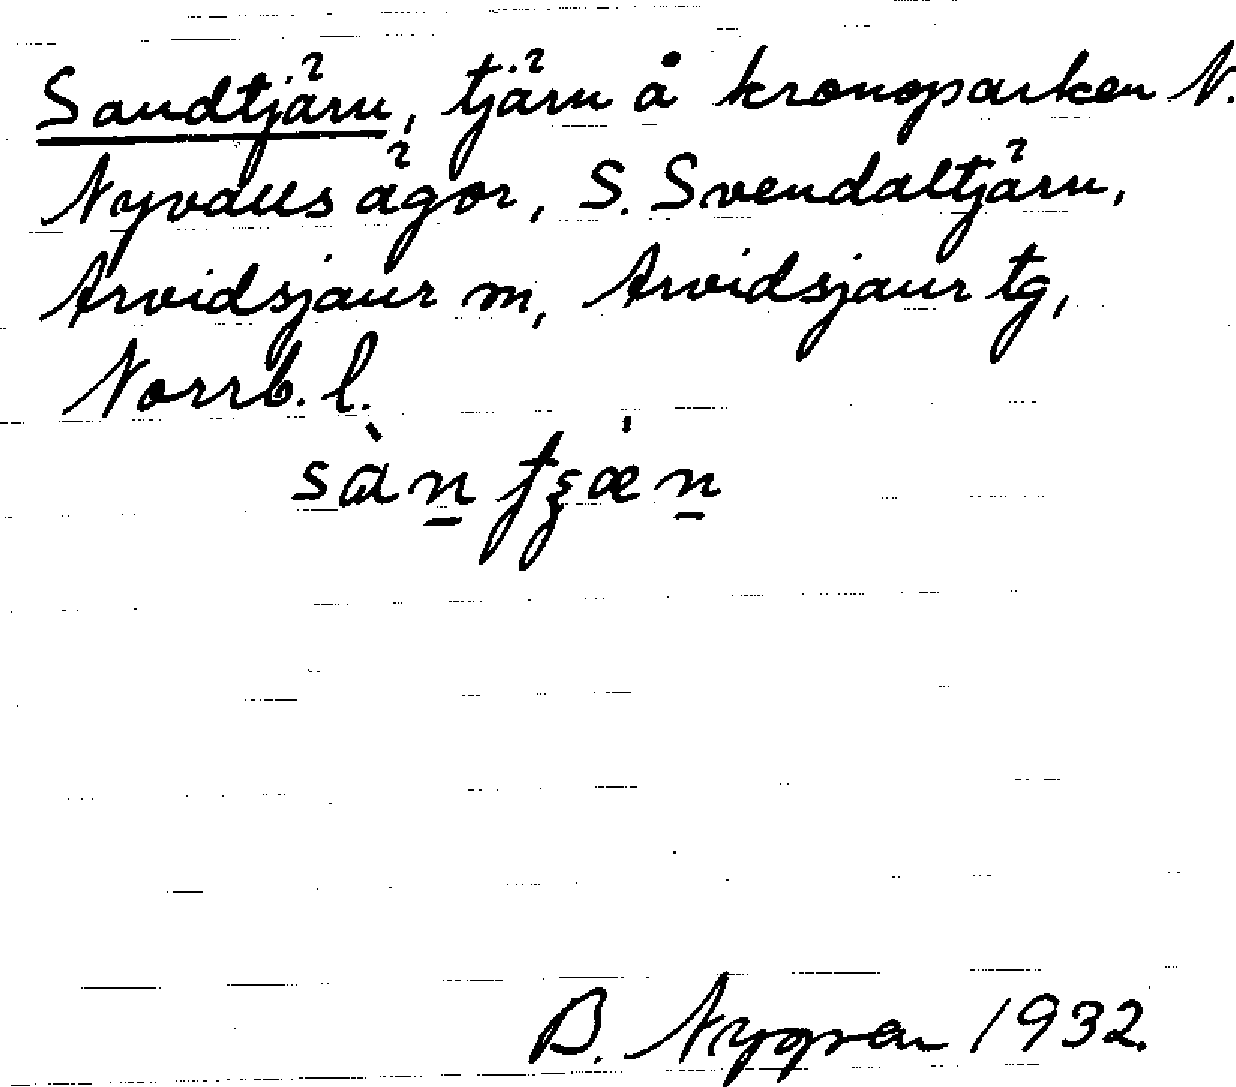 Sandtjärn, tjärn å kronoparken N.
Nyvalls ägor, S. Svendaltjärn,
Arvidsjaur m, Arvidsjaur tg,
Norrb. l.
B. Nygren 1932.